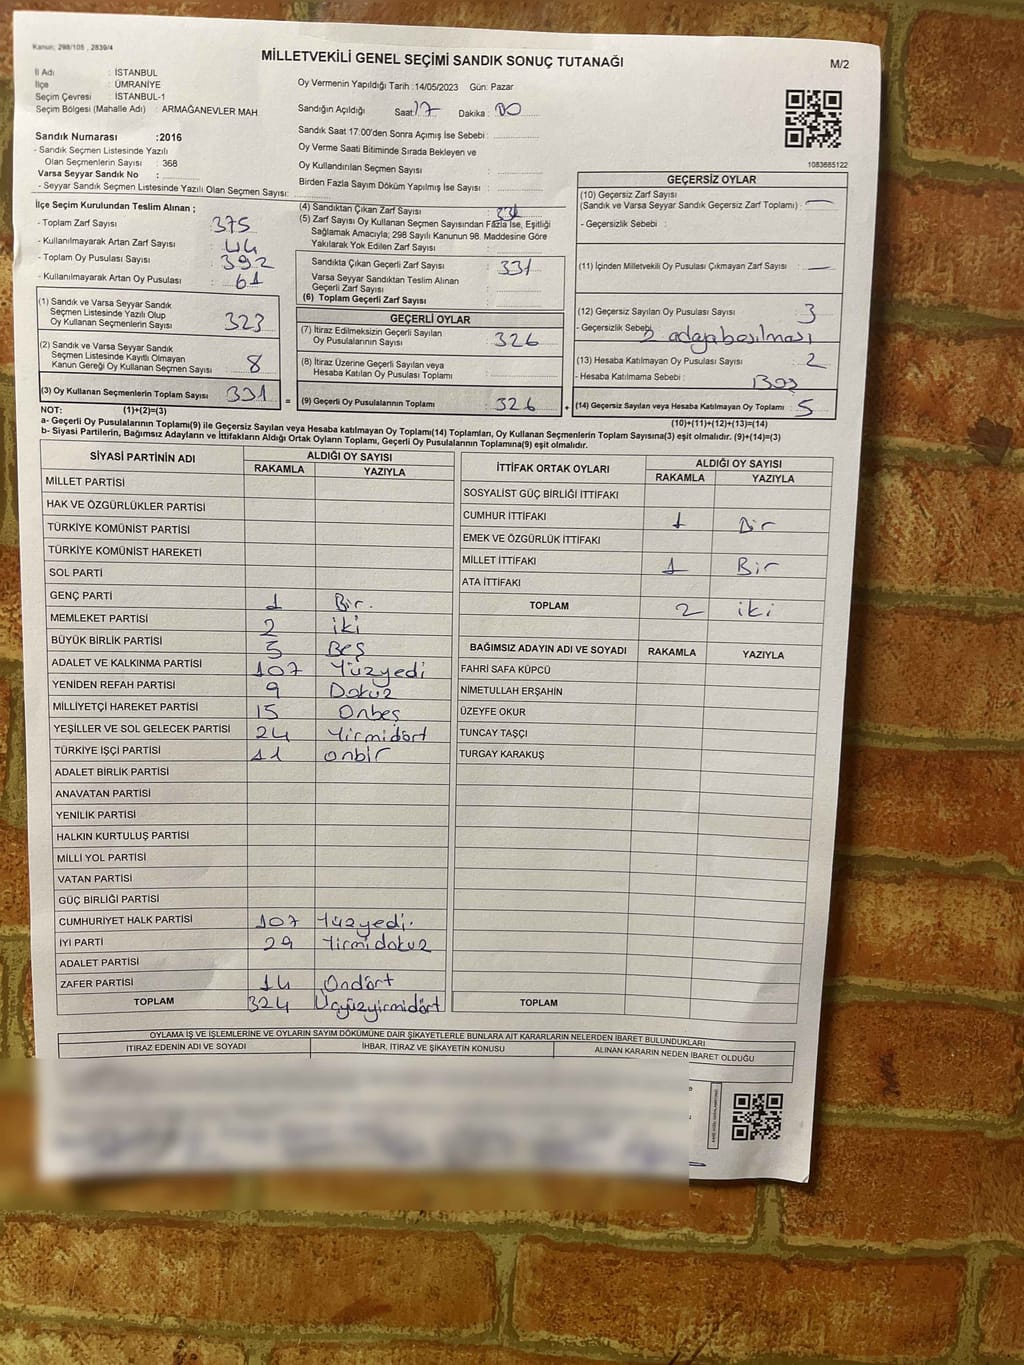 Kanun; 298/105 , 2839/4
MİLLETVEKİLİ GENEL SEÇİMİ SANDIK SONUÇ TUTANAĞI
M/2
İl Adı : İSTANBUL
İlçe : ÜMRANİYE
Seçim Çevresi : İSTANBUL-1
Seçim Bölgesi (Mahalle Adı) : ARMAĞANEVLER MAH
Sandık Numarası :2016
- Sandık Seçmen Listesinde Yazılı
Olan Seçmenlerin Sayısı : 368
Varsa Seyyar Sandık No :
- Seyyar Sandık Seçmen Listesinde Yazılı Olan Seçmen Sayısı:
Oy Vermenin Yapıldığı Tarih :14/05/2023 Gün: Pazar
Sandığın Açıldığı Saat: 17 Dakika : 00
Sandık Saat 17:00'den Sonra Açımış İse Sebebi :
Oy Verme Saati Bitiminde Sırada Bekleyen ve
Oy Kullandırılan Seçmen Sayısı :
Birden Fazla Sayım Döküm Yapılmış İse Sayısı :
1083685122
İlçe Seçim Kurulundan Teslim Alınan ;
- Toplam Zarf Sayısı : 375
- Kullanılmayarak Artan Zarf Sayısı : 44
- Toplam Oy Pusulası Sayısı : 392
- Kullanılmayarak Artan Oy Pusulası : 61
(1) Sandık ve Varsa Seyyar Sandık
Seçmen Listesinde Yazılı Olup
Oy Kullanan Seçmenlerin Sayısı : 323
(2) Sandık ve Varsa Seyyar Sandık
Seçmen Listesinde Kayıtlı Olmayan
Kanun Gereği Oy Kullanan Seçmen Sayısı : 8
(3) Oy Kullanan Seçmenlerin Toplam Sayısı : 331 =
(4) Sandıktan Çıkan Zarf Sayısı : 331
(5) Zarf Sayısı Oy Kullanan Seçmen Sayısından Fazla İse, Eşitliği
Sağlamak Amacıyla; 298 Sayılı Kanunun 98. Maddesine Göre
Yakılarak Yok Edilen Zarf Sayısı :
Sandıkta Çıkan Geçerli Zarf Sayısı : 331
Varsa Seyyar Sandıktan Teslim Alınan
Geçerli Zarf Sayısı :
(6) Toplam Geçerli Zarf Sayısı :
GEÇERLİ OYLAR
(7) İtiraz Edilmeksizin Geçerli Sayılan
Oy Pusulalarının Sayısı : 326
(8) İtiraz Üzerine Geçerli Sayılan veya
Hesaba Katılan Oy Pusulası Toplamı :
(9) Geçerli Oy Pusulalarının Toplamı : 326 +
GEÇERSİZ OYLAR
(10) Geçersiz Zarf Sayısı
(Sandık ve Varsa Seyyar Sandık Geçersiz Zarf Toplamı) : —
- Geçersizlik Sebebi :
(11) İçinden Milletvekili Oy Pusulası Çıkmayan Zarf Sayısı : —
(12) Geçersiz Sayılan Oy Pusulası Sayısı : 3
- Geçersizlik Sebebi:
(13) Hesaba Katılmayan Oy Pusulası Sayısı : 2
- Hesaba Katılmama Sebebi :
(14) Geçersiz Sayılan veya Hesaba Katılmayan Oy Toplamı : 5
NOT: (1)+(2)=(3)
(10)+(11)+(12)+(13)=(14)
a- Geçerli Oy Pusulalarının Toplamı(9) ile Geçersiz Sayılan veya Hesaba katılmayan Oy Toplamı(14) Toplamları, Oy Kullanan Seçmenlerin Toplam Sayısına(3) eşit olmalıdır. (9)+(14)=(3)
b- Siyasi Partilerin, Bağımsız Adayların ve İttifakların Aldığı Ortak Oyların Toplamı, Geçerli Oy Pusulalarının Toplamına(9) eşit olmalıdır.
SİYASİ PARTİNİN ADI ALDIĞI OY SAYISI
RAKAMLA YAZIYLA
MİLLET PARTİSİ
HAK VE ÖZGÜRLÜKLER PARTİSİ
TÜRKİYE KOMÜNİST PARTİSİ
TÜRKİYE KOMÜNİST HAREKETİ
SOL PARTİ
GENÇ PARTİ 1 Bir.
MEMLEKET PARTİSİ 2 iki
BÜYÜK BİRLİK PARTİSİ 5 Beş
ADALET VE KALKINMA PARTİSİ 107 Yüzyedi
YENİDEN REFAH PARTİSİ 9 Dokuz
MİLLİYETÇİ HAREKET PARTİSİ 15 Onbeş
YEŞİLLER VE SOL GELECEK PARTİSİ 24 Yirmidört
TÜRKİYE İŞÇİ PARTİSİ 11 onbir
ADALET BİRLİK PARTİSİ
ANAVATAN PARTİSİ
YENİLİK PARTİSİ
HALKIN KURTULUŞ PARTİSİ
MİLLİ YOL PARTİSİ
VATAN PARTİSİ
GÜÇ BİRLİĞİ PARTİSİ
CUMHURİYET HALK PARTİSİ 107 Yüzyedi.
İYİ PARTİ 29 Yirmidokuz
ADALET PARTİSİ
ZAFER PARTİSİ 14 Ondört
TOPLAM 324 Üçyüzyirmidört
İTTİFAK ORTAK OYLARI ALDIĞI OY SAYISI
RAKAMLA YAZIYLA
SOSYALİST GÜÇ BİRLİĞİ İTTİFAKI
CUMHUR İTTİFAKI 1 Bir
EMEK VE ÖZGÜRLÜK İTTİFAKI
MİLLET İTTİFAKI 1 Bir
ATA İTTİFAKI
TOPLAM 2 iki
BAĞIMSIZ ADAYIN ADI VE SOYADI RAKAMLA YAZIYLA
FAHRİ SAFA KÜPCÜ
NİMETULLAH ERŞAHİN
ÜZEYFE OKUR
TUNCAY TAŞÇI
TURGAY KARAKUŞ
TOPLAM
OYLAMA İŞ VE İŞLEMLERİNE VE OYLARIN SAYIM DÖKÜMÜNE DAİR ŞİKAYETLERLE BUNLARA AİT KARARLARIN NELERDEN İBARET BULUNDUKLARI
İTİRAZ EDENİN ADI VE SOYADI İHBAR, İTİRAZ VE ŞİKAYETİN KONUSU ALINAN KARARIN NEDEN İBARET OLDUĞU